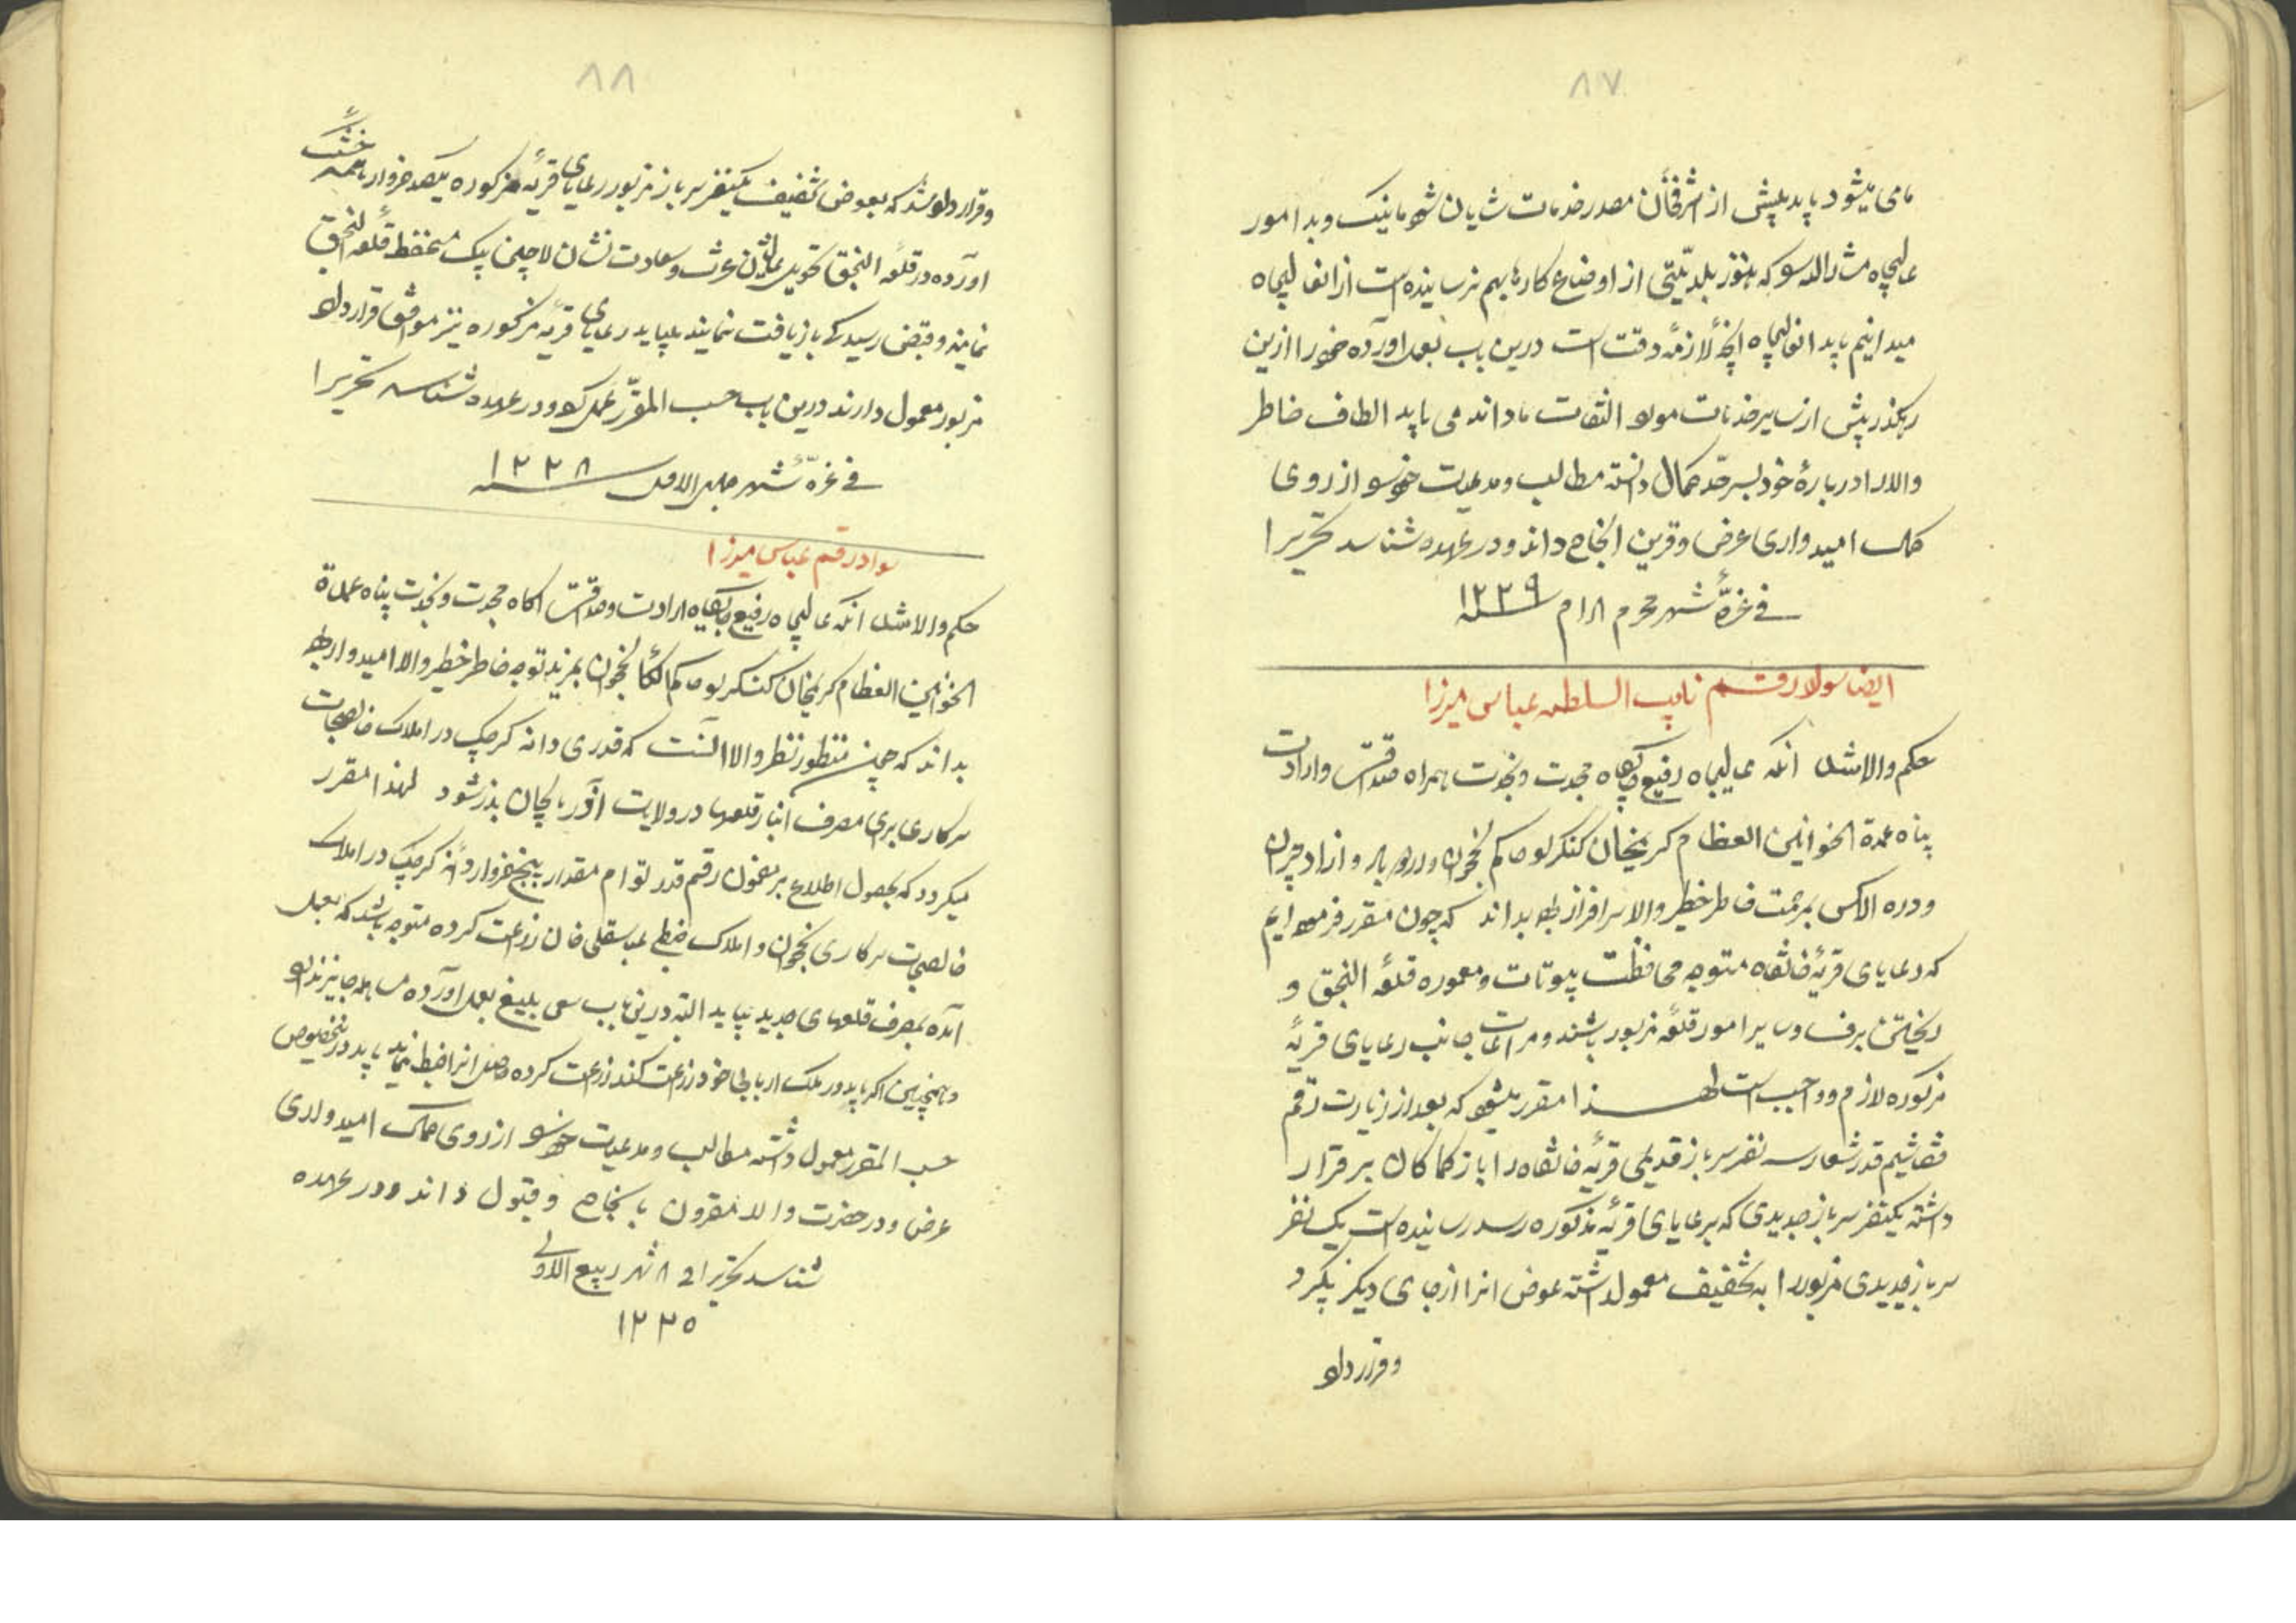 ۸۷
مامی میشود باید بیش از اشرفخان مصدر خدمات شایان شود مانیک و بد امور
عالیجاه مشارالیه سو که هنوز بلدیّتی از اوضاع کارها بهم نرسانیده است از انعالیجاه
میدانیم باید انعالیجاه آنچه لازمهٔ دقت است درین باب بعمل اورده خود را ازین
رهگذر بیش از سایر خدمات مورد التفات ما داند می باید الطاف خاطر
والا را دربارهٔ خود بسرحد کمال دانسته مطالب و مدعیات خود سو از روی
کمال امیدواری عرض و قرین انجاح داند و در عهده شناسد تحریرا
فی غرّهٔ شهر محرم الحرام سنه ۱۲۳۹
ایضا سواد رقم نایب السلطنه عباس میرزا
حکم والا شد آنکه عالیجاه رفیع جایگاه مجدت و نجدت همراه صداقت و ارادت
پناه عمدة الخوانین العظام کریمخان کنکرلو حاکم نخجوان و دره بار و ازاد جیران
و دره الاکس بمرحمت خاطر خطیر والا سرافراز بوده بداند که چون مقرر فرموده ایم
که رعایای قریهٔ خانقاه متوجه محافظت بیوتات و معموره قلعهٔ النجق و
ریختن برف و سایر امور قلعهٔ مزبور باشند و مراعات جانب رعایای قریهٔ
مزکوره لازم و واجب است لهذا مقرر میشود که بعد از زیارت رقم
قضا شیم قدر شعار سه نفر سرباز قدیمی قریهٔ خانقاه را باز کماکان برقرار
داشته یکنفر سرباز جدیدی که برعایای قریهٔ مذکوره رسد رسانیده است یک نفر
سرباز جدیدی مزبور را به تخفیف معمولداشته عوض انرا از جای دیگر بگیرد
و قرار داد
۸۸
و قرار داده شد که بعوض تخفیف یکنفر سرباز مزبور رعایای قریهٔ مزکوره یکصد خروار هیمهٔ خشک
اورده در قلعه النجق تحویل عالیشان عزت و سعادت نشان لاچین بیک مستحفظ قلعهٔ النجق
نمایند و قبض رسید که بازیافت نمایند میباید رعایای قریهٔ مزکوره نیز موافق قرارداد
مزبور معمول دارند درین باب حسب المقرّر عمل کرده و در عهده شناسد تحریرا
فی غرّهٔ شهر جمادی الاول سنه ۱۲۳۸
سواد رقم عباس میرزا
حکم والا شد آنکه عالیجاه رفیع جایگاه ارادت و صداقت اکاه مجدت و نجدت پناه عمدة
الخوانین العظام کریمخان کنکرلو حاکم الکای نخجوان بمزید توجه خاطر خطیر والا امیدوار بوده
بداند که چون منظور نظر والا آنست که قدری دانه کرچک در املاک خالصجات
سرکاری برای مصرف انبار قلعها در ولایت آذربایجان بذر شود لهذا مقرر
میکردد که بحصول اطلاع بر مضمون رقم قدر توام مقدار پنج خروار دانه کرچک در املاک
خالصجات سرکاری نخجوان و املاک ضبطی عباسقلی خان زراعت کرده متوجه باشد که بعمل
آمده بمصرف قلعهای جدید بیاید البته درین باب سعی بلیغ بعمل اورده مساهله جایز نداند
و همچنین اکر باید در ملک اربابی خود زراعت کند زراعت کرده حاصل انرا ضبط نماید باید درینخصوص
حسب المقرر معمول داشته مطالب و مدعیات خود سو از روی کمال امیدواری
عرض و در حضرت والا مقرون بانجاح و قبول داند و در عهده
شناسد تحریرا فی ۸ شهر ربیع الاولی
۱۲۳۵